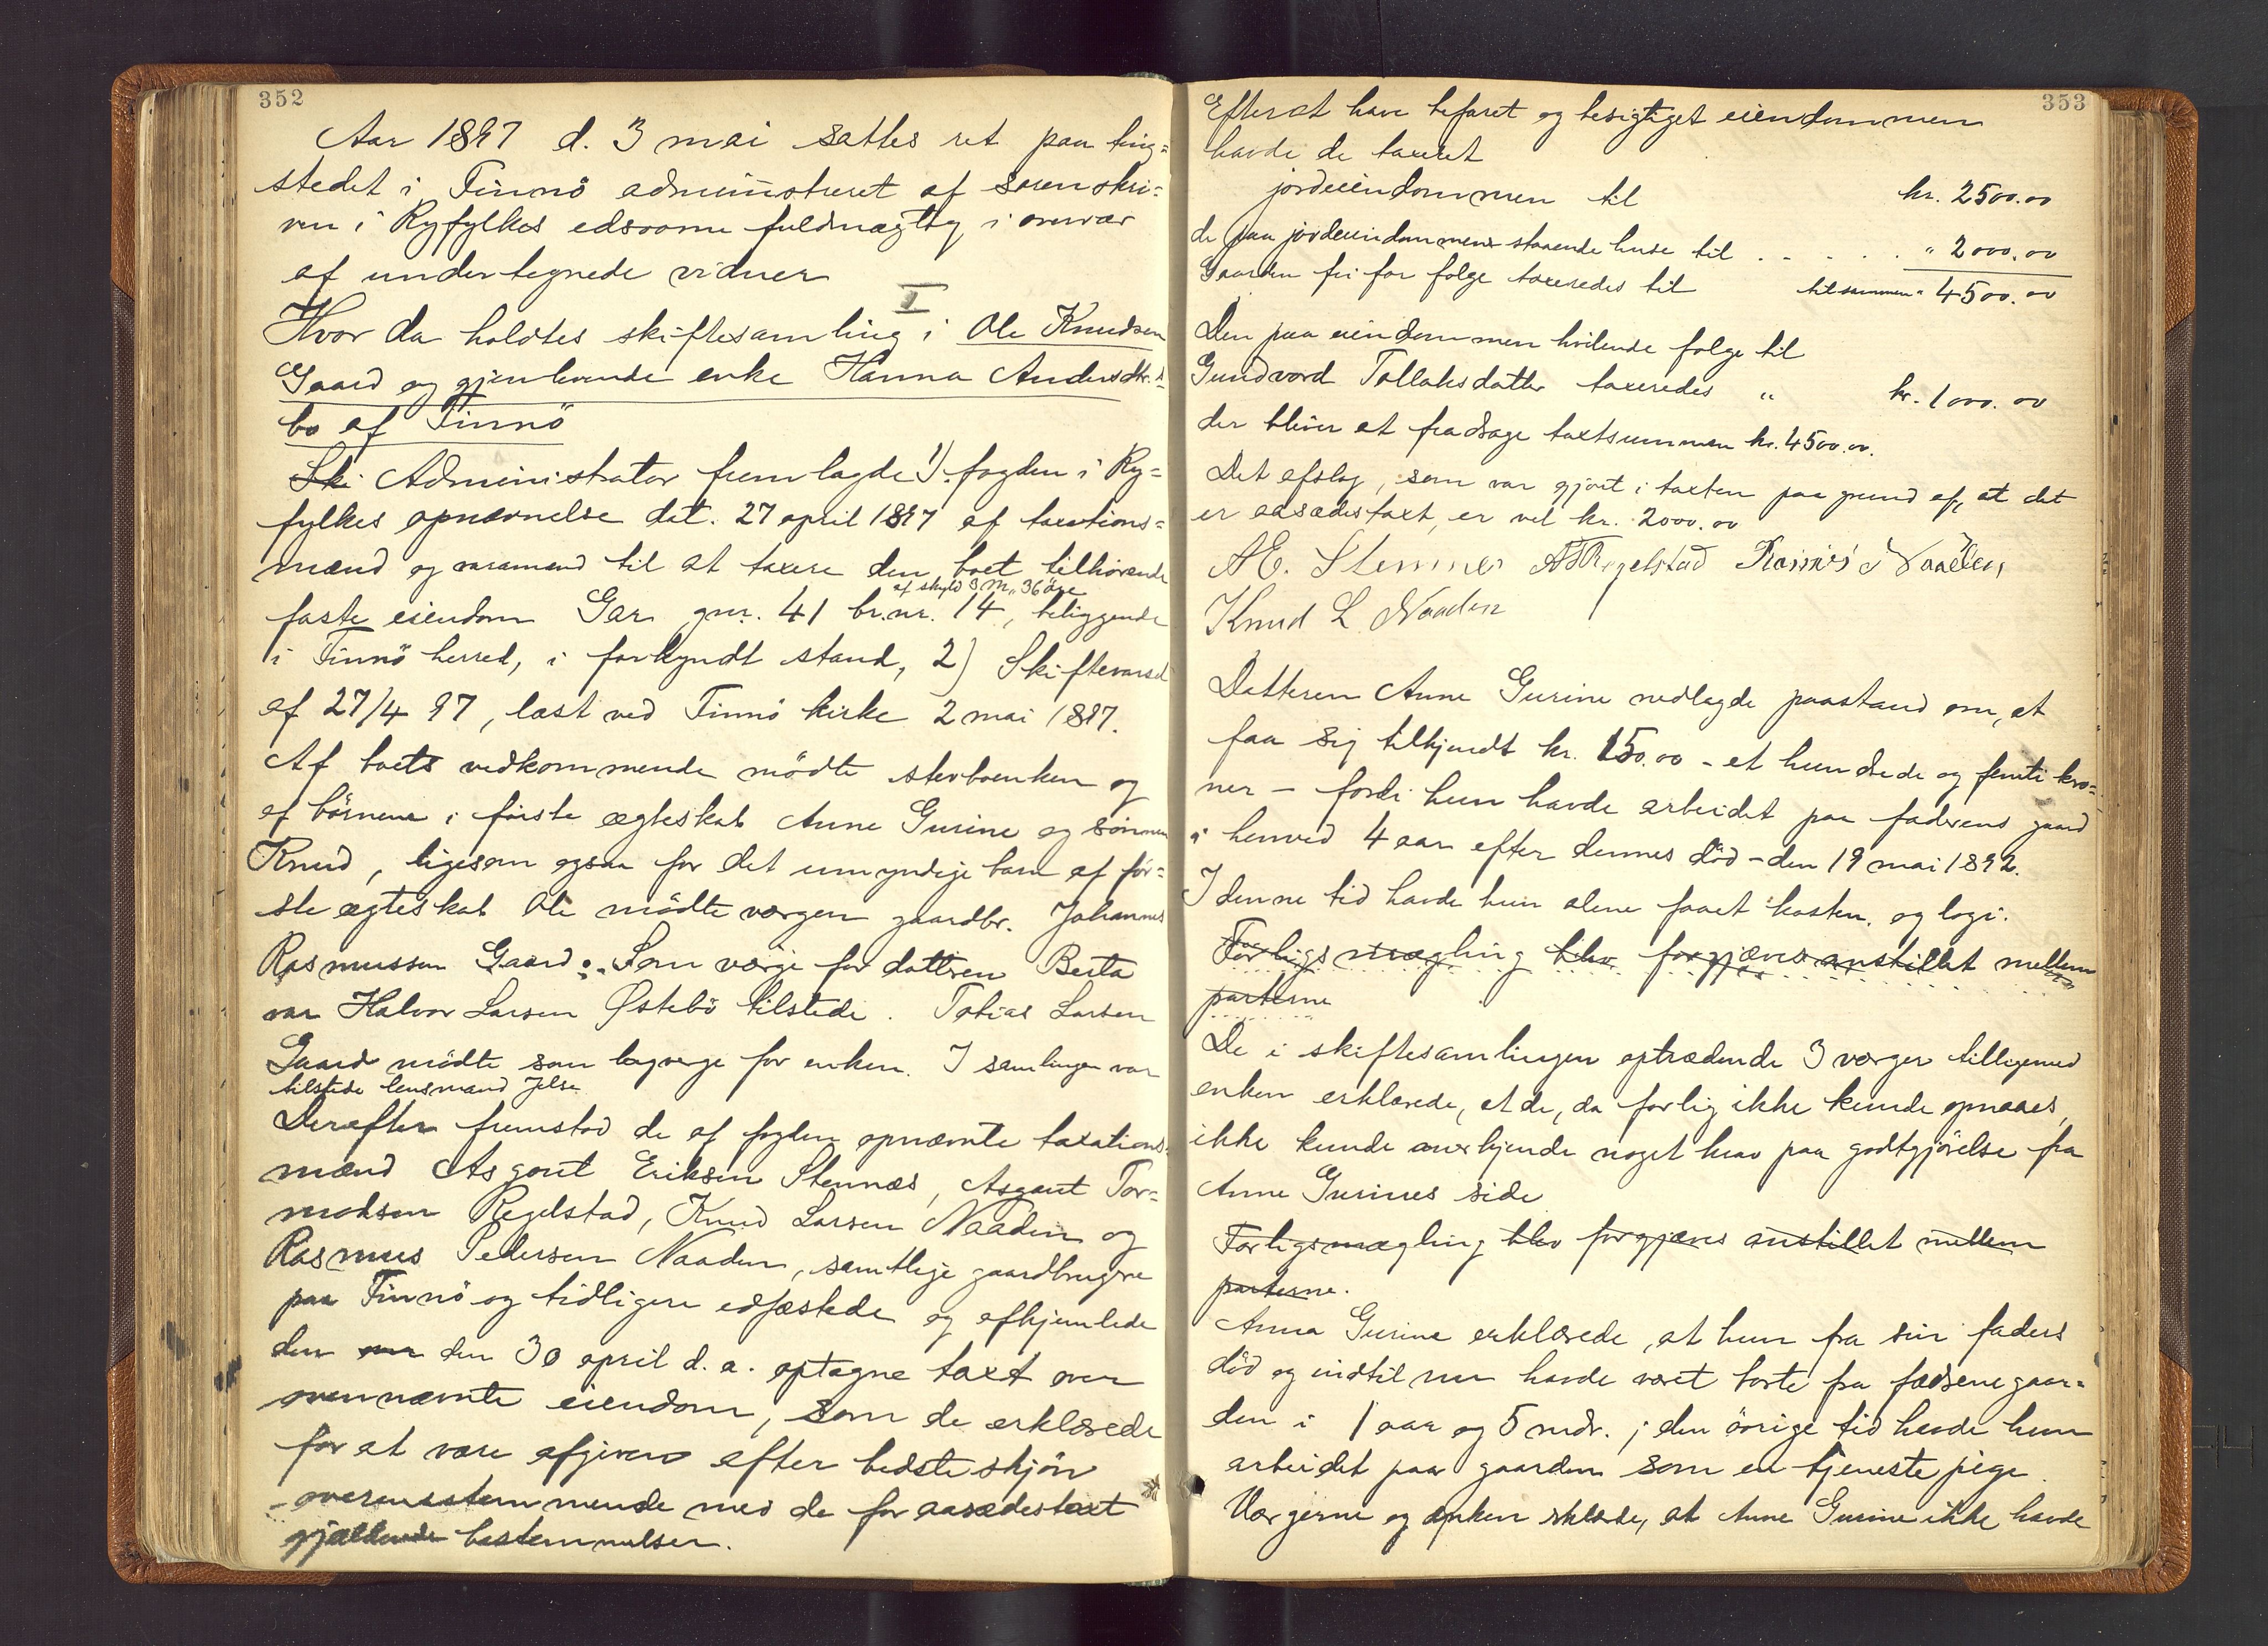 352
Aar 1897 d. 3 mai sattes ret paa ting=
stedet i Finnö administreret af sorenskri=
veren i Ryfylkes edsvorne fuldmægtig i overvær
af undertegnede vidner
I
Hvor da holdtes skiftesamling i Ole Knudsen
Gaard og gjenlevende enke Hanna Andersdtr.s
bo af Finnö
Ski Administrator fremlagde 1). fogden i Ry=
fylkes opnævnelse dat. 27 april 1897 af taxations=
mænd og varamænd til at taxere den boet tilhörende
af skyld 3 M. 36 öre
faste eiendom Gar gnr. 41 br.nr. 14, beliggende
i Finnö herred, i forkyndt stand, 2) Skiftevarsel
af 27/4 97, læst ved Finnö kirke 2 mai 1897.
Af boets vedkommende mödte sterboenken og
af börnene i förste ægteskab Anne Gurine og sönnen
Knud, ligesom ogsaa for det umyndige barn af för=
ste ægteskab Ole mödte værgen gaardbr. Johannes
Rasmussen Gaard. Som værge for datteren Berta
var Halvor Larsen Østebö tilstede. Tobias Larsen
Gaard mödte som lagværge for enken. I samlingen var
tilstede lensmand Jelsa
Derefter fremstod de af fogden opnævnte taxations=
mænd Asgout Eriksen Stennæs, Asgaut Tor=
modsen Regelstad, Knud Larsen Naaden og
Rasmus Pedersen Naaden, samtlige gaardbrugere
paa Finnö og tidligere edfæstede og afhjemlede
den den 30 april d. a. optagne taxt over
ovennævnte eiendom, som de erklærede
for at være afgiven efter bedste skjön
overensstemmende med de for aasædestaxt
gjældende bestemmelser.
353
Efterat have befaret og besigtiget eiendommen
havde de taxeret
jordeiendommen til kr. 2500.00
de paa jordeiendommen staaende huse til . . . . . " 2000.00
Gaarden fri for folge taxeredes til tilsammen " 4500.00
Den paa eiendommen hvilende folge til
Gundvord Tollaksdatter taxeredes " kr. 1000.00
der bliver at fradrage taxtsummen kr. 4500.00.
Det afslag, som var gjort i taxten paa grund af, at det
er aasædestaxt, er vel kr. 2000.00
AE. Stennes A T Regelstad Rasmus P Naaden
Knud L Naaden
Datteren Anne Gurine nedlagde paastand om, at
faa sig tilkjendt kr. 150.00 - et hundrede og femti kro=
ner - fordi hun havde arbeidet paa faderens gaard
i henved 4 aar efter dennes död - den 19 mai 1892.
I denne tid havde hun alene faaet kosten og logi.
Forligsmægling blev forgjæves anstillet mellem
parterne
De i skiftesamlingen optrædende 3 værger tilligemed
enken erklærede, at de, da forlig ikke kunde opnaaes,
ikke kunde anerkjende noget krav paa godtgjörelse fra
Anne Gurines side
Forligsmægling blev forgjæves anstillet mellem
parterne.
Anna Gurine erklærede, at hun fra sin faders
död og indtil nu havde været borte fra fædrenegaar=
den i 1 aar og 5 mdr. ; den övrige tid havde hun
arbeidet paa gaarden som en tjenestepige.
Værgerne og enken erklærede, at Anne Gurine ikke havde